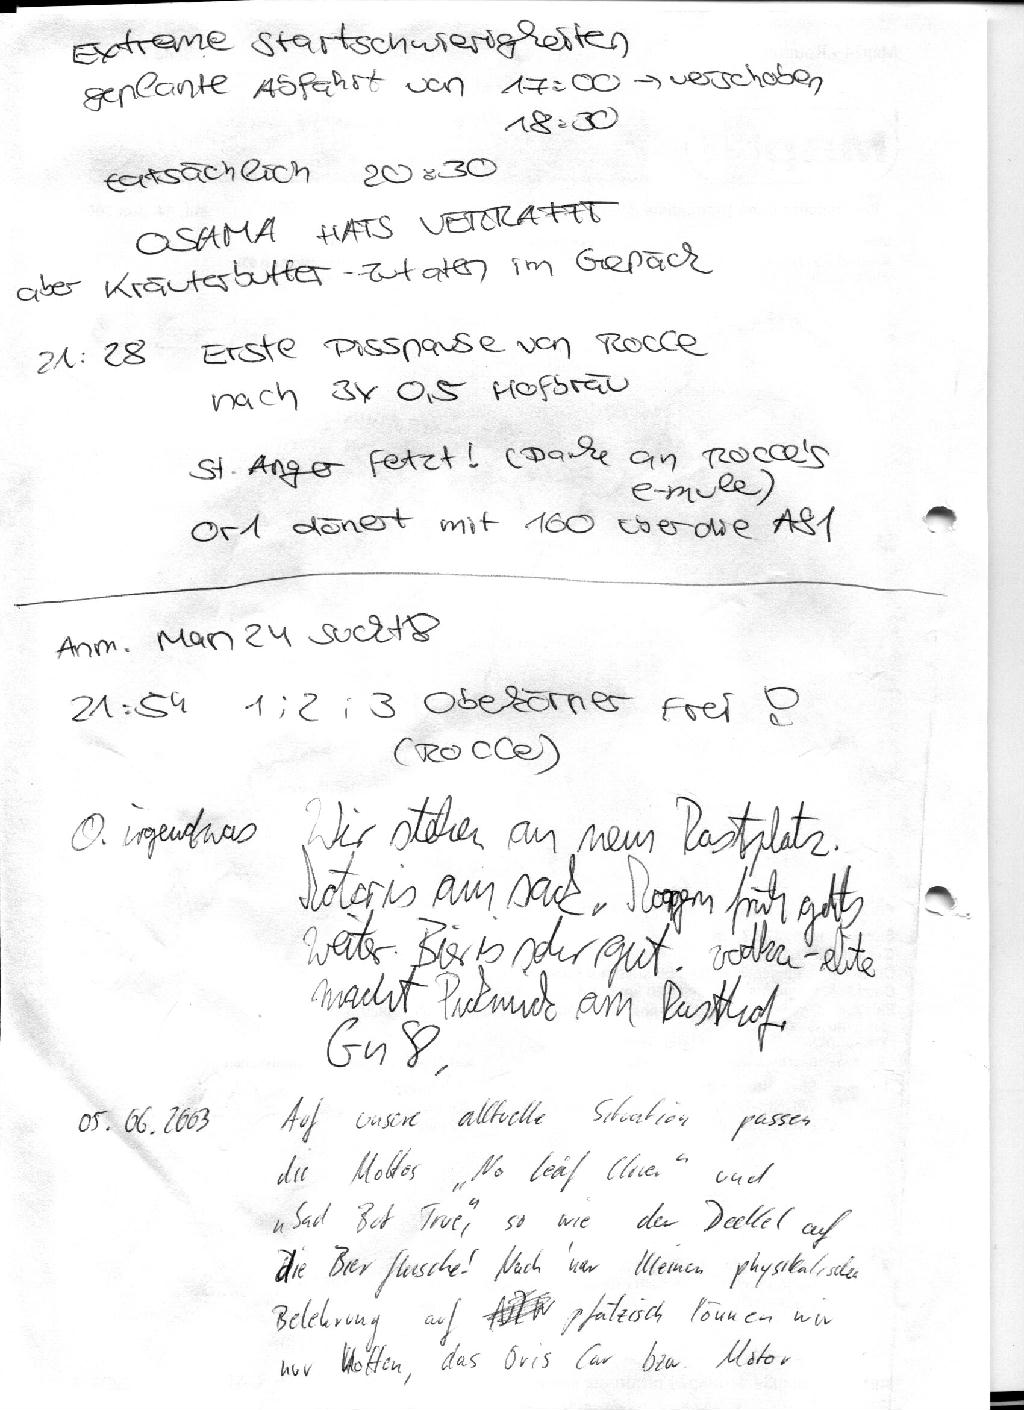 Extreme Startschwierigkeiten
geplante Abfahrt von 17:00 → verschoben
18:30
tatsächlich 20:30
OSAMA HATS VERRAFFT
aber Kräuterbutter-Zutaten im Gepäck
21:28 Erste Pisspause von Rocce
nach 3x 0,5 Hofbräu
St. Anger fetzt! (Danke an ROCCE's
e-mule)
Or1 donert mit 160 über die A81
Anm. Man 24 suckt8
21:54 1;2;3 Obekörner Frei !
(ROCCE)
O. irgendwas Wir stehen an nem Rastplatz.
Motor is am sack. Moogen früh gehts
weiter. Bier is sehr gut. vodka-elite
macht Picknick am Rasthof.
Gn8,
05.06.2003 Auf unsere aktuelle Situation passen
die Mottos „No leaf clover" und
„Sad But True", so wie der Deckel auf
die Bierflasche! Nach 'ner kleinen physikalischen
Belehrung auf pfälzisch können wir
nur hoffen, das Oris Car bzw. Motor